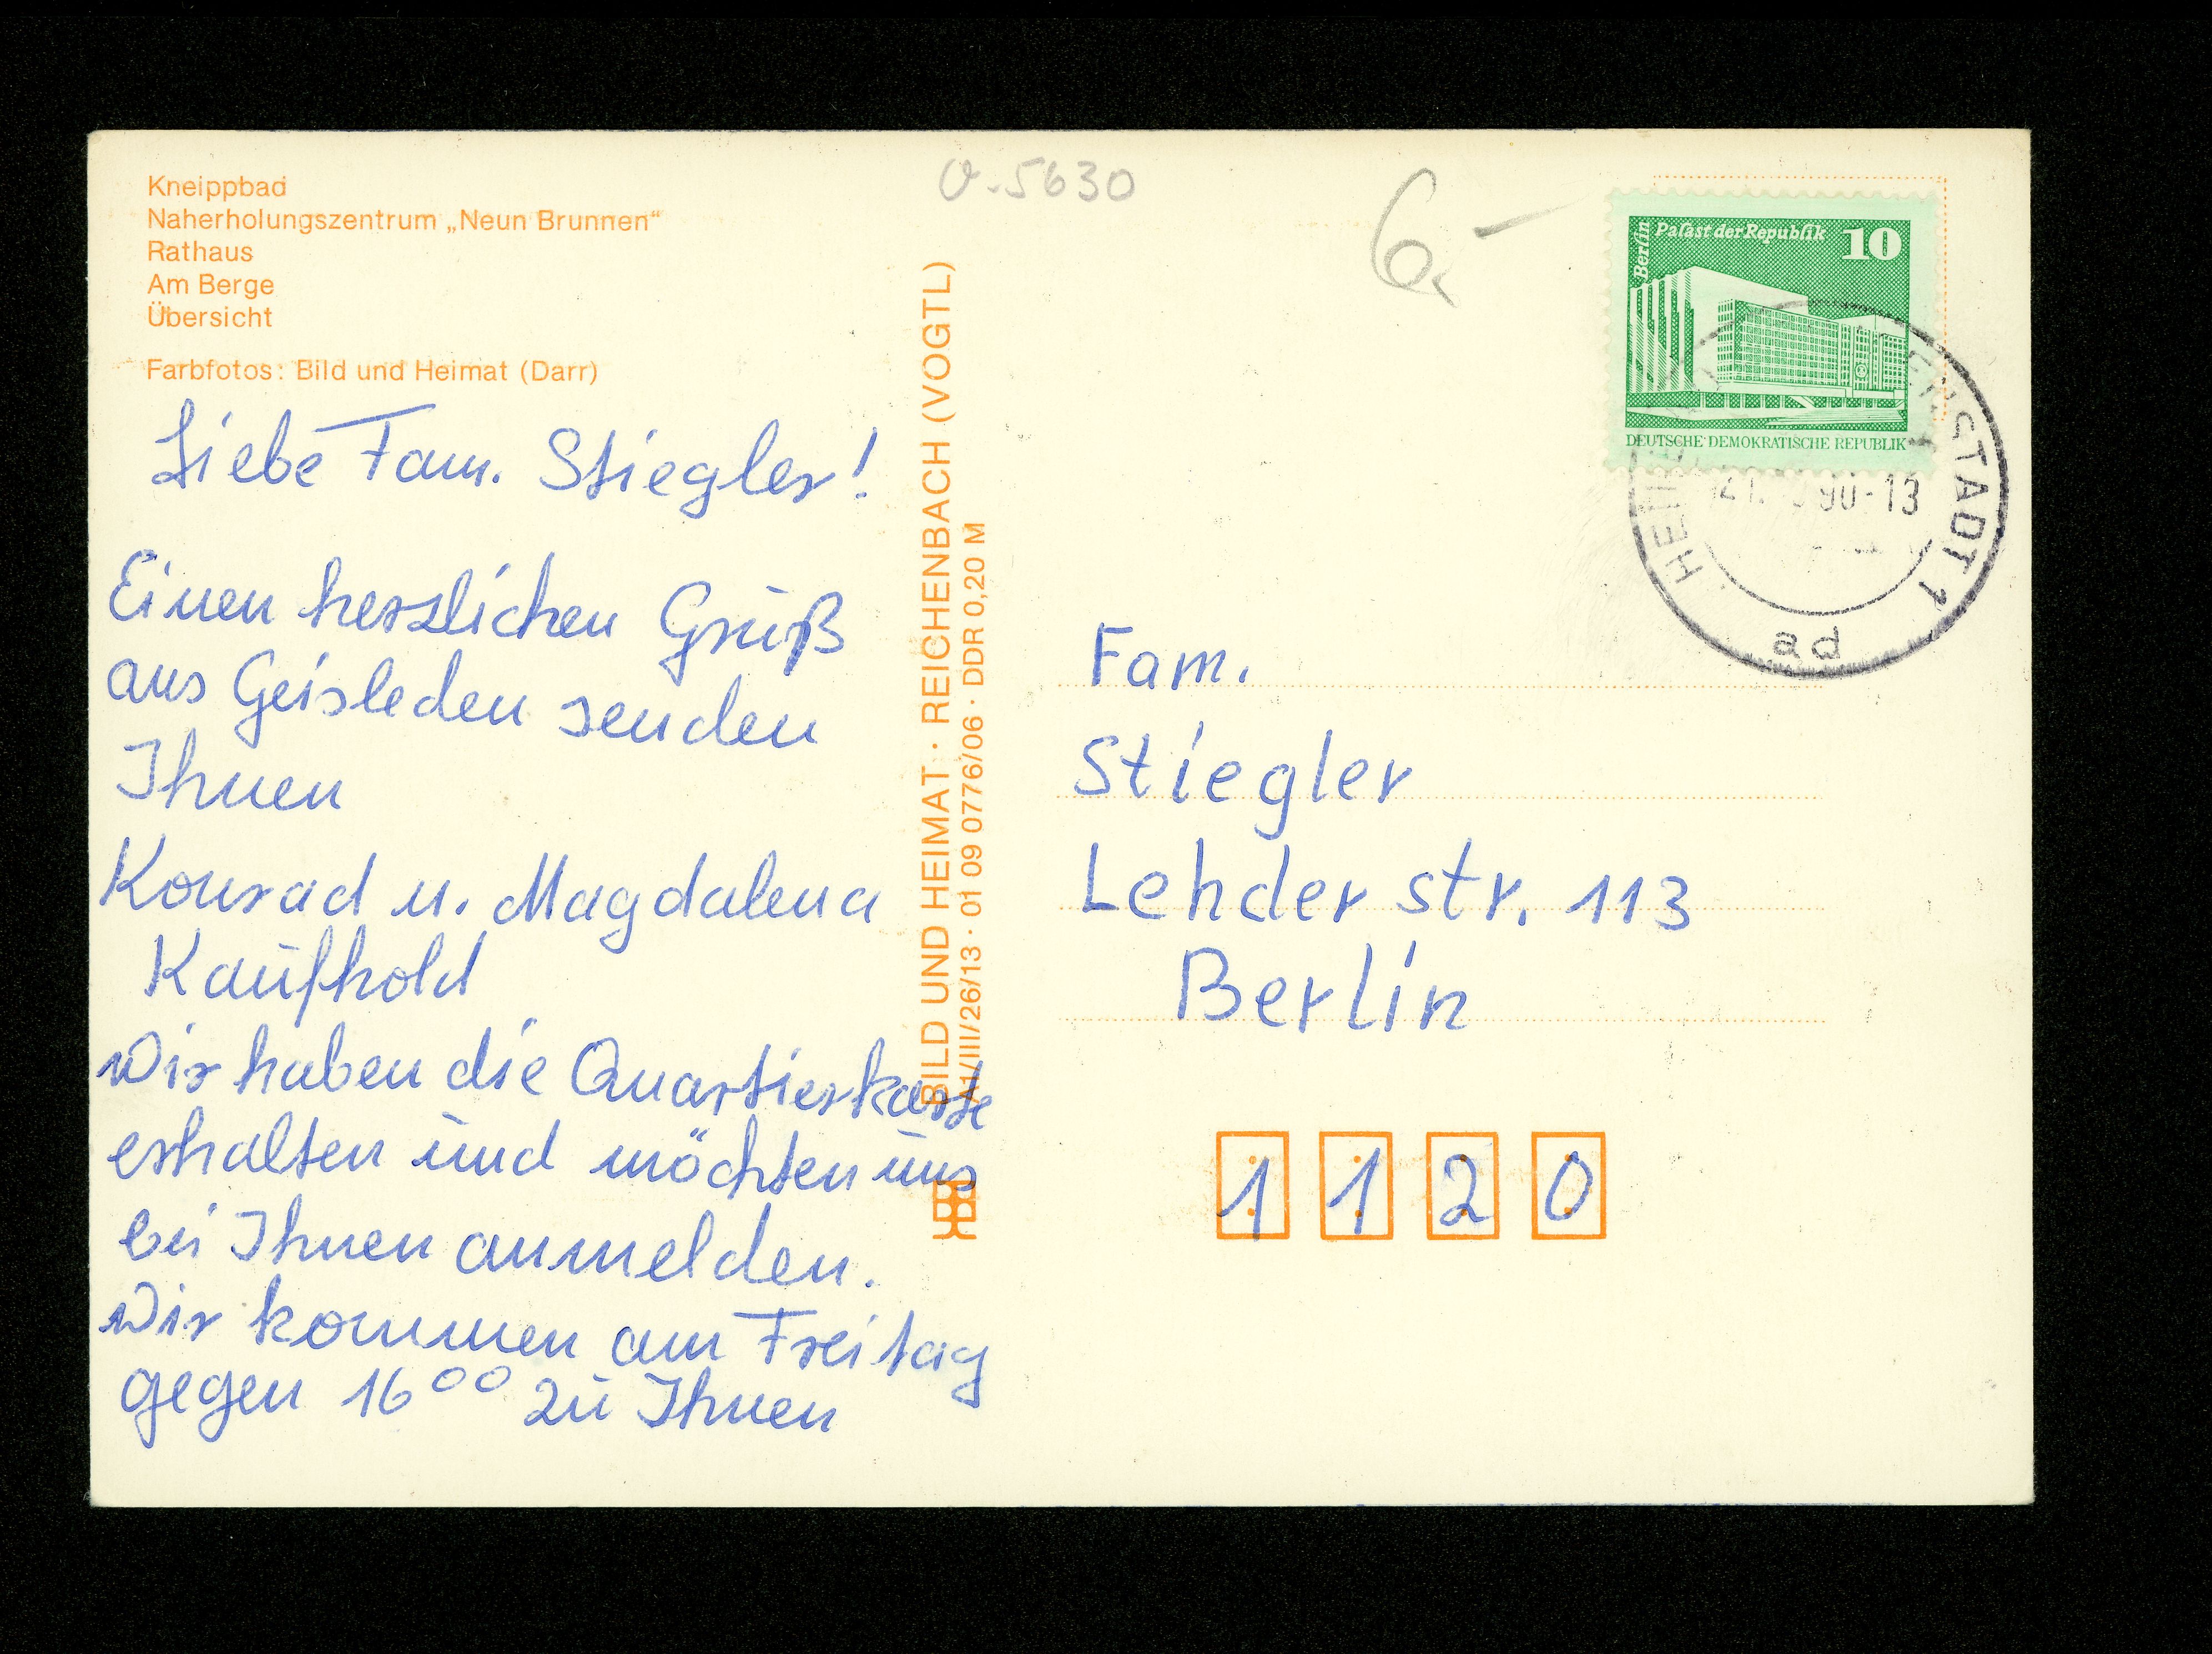 Kneippbad
Naherholungszentrum „Neun Brunnen“
Rathaus
Am Berge
Übersicht
Farbfotos: Bild und Heimat (Darr)
Liebe Fam. Stiegler!
Einen herzlichen Gruß
aus Geisleden senden
Ihnen
Konrad u. Magdalena
Kaufhold
Wir haben die Quartierkarte
erhalten und möchten uns
bei Ihnen anmelden.
Wir kommen am Freitag
gegen 16⁰⁰ zu Ihnen
BILD UND HEIMAT · REICHENBACH (VOGTL)
A1/III/26/13 · 01 09 0776/06 · DDR 0,20 M
V-5630
6,-
Berlin
Palast der Republik
10
DEUTSCHE DEMOKRATISCHE REPUBLIK
90-13
STADT 1
ad
Fam.
Stiegler
Lehderstr. 113
Berlin
1120